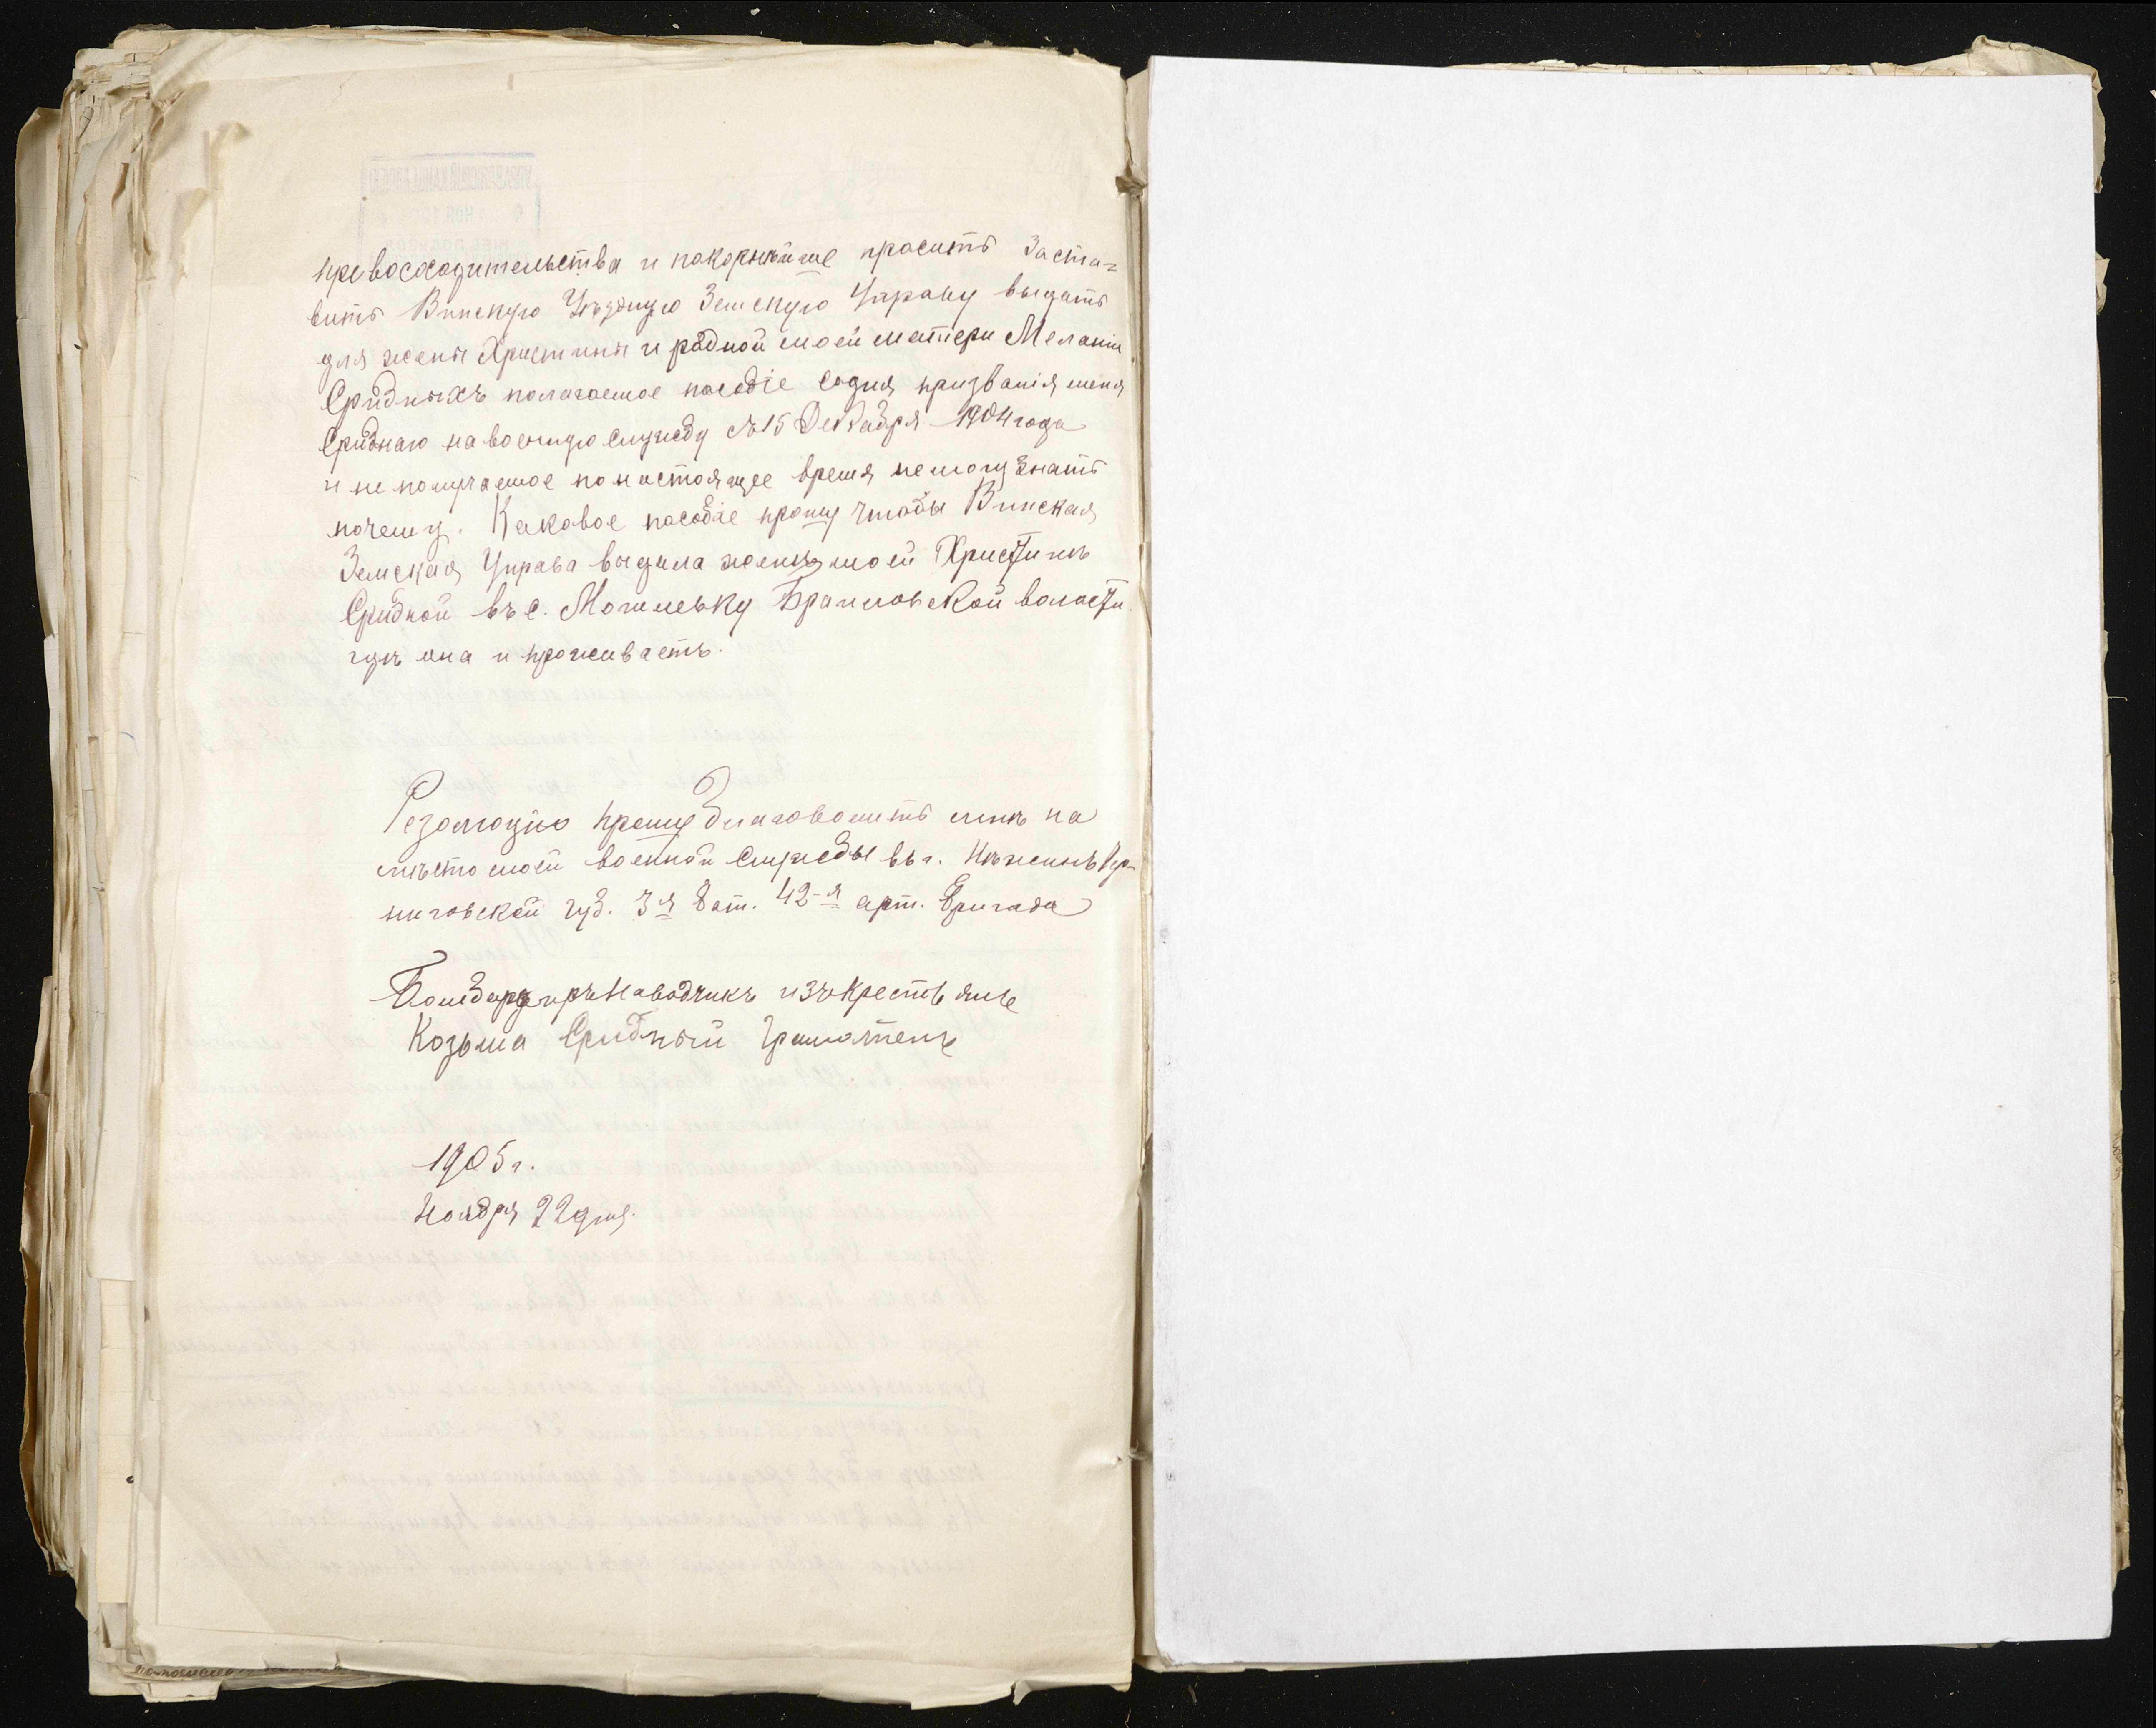 превосходительства и покорнѣйше просить Заста=
вить Винскую Уѣздную Земскую Управу выдать
для жены Христины и родной моей матери Меланiи
Сридныхъ полагаемое пособiе со дня призванiя меня
Сриднаго на военную службу съ 15 Декабря 1904 года
и не получаемое по настоящее время не могу Знать
почему. Каковое пособiе прошу чтобы Винская
Земская Управа выдала женѣ моей Христинѣ
Сридной въ с. Могилевку Браиловской волости.
гдѣ она и проживаетъ.
Резолюцiю прошу благоволить мнѣ на
мѣсто моей военной службы въ г. Нѣжинъ Чер-
ниговской губ. 3я бат. 42-я арт. бригада
Бомбардиръ Наводчикъ изъ крестьянъ
Козьма Сридный Грамотенъ
1905 г.
Ноября 22 дня.